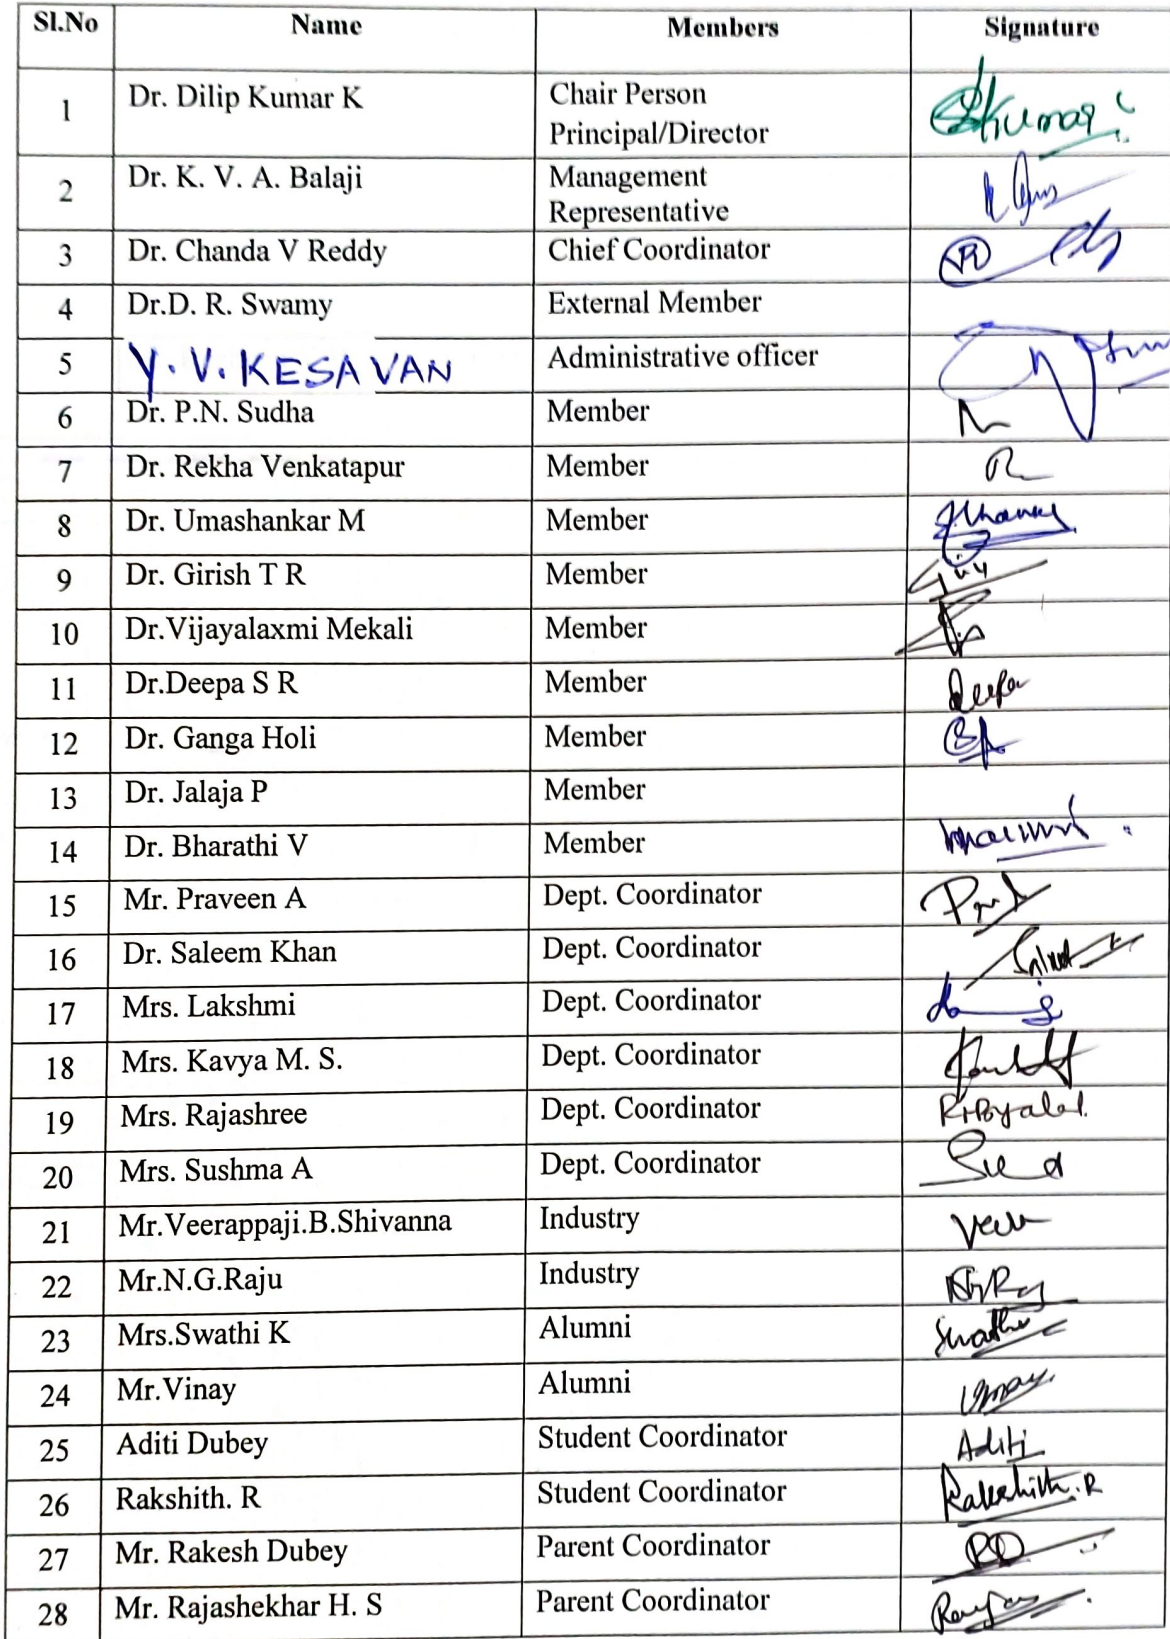 Sl.No Name Members Signature
1 Dr. Dilip Kumar K Chair Person
Principal/Director
Kumar
2 Dr. K. V. A. Balaji Management
Representative
3 Dr. Chanda V Reddy Chief Coordinator
4 Dr.D. R. Swamy External Member
5 Y. V. KESAVAN Administrative officer
6 Dr. P.N. Sudha Member
7 Dr. Rekha Venkatapur Member
8 Dr. Umashankar M Member
9 Dr. Girish T R Member
10 Dr.Vijayalaxmi Mekali Member
11 Dr.Deepa S R Member Deepa
12 Dr. Ganga Holi Member
13 Dr. Jalaja P Member
14 Dr. Bharathi V Member
15 Mr. Praveen A Dept. Coordinator
16 Dr. Saleem Khan Dept. Coordinator
17 Mrs. Lakshmi Dept. Coordinator
18 Mrs. Kavya M. S. Dept. Coordinator
19 Mrs. Rajashree Dept. Coordinator
20 Mrs. Sushma A Dept. Coordinator
21 Mr.Veerappaji.B.Shivanna Industry
22 Mr.N.G.Raju Industry
23 Mrs.Swathi K Alumni Swathi
24 Mr.Vinay Alumni Vinay
25 Aditi Dubey Student Coordinator Aditi
26 Rakshith. R Student Coordinator Rakshith.R
27 Mr. Rakesh Dubey Parent Coordinator RD
28 Mr. Rajashekhar H. S Parent Coordinator